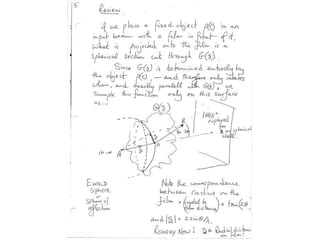 5
Review
If we place a fixed object ρ(r) in an
input beam with a film in front of it,
what is projected onto the film is a
spherical section cut through G(S).
Since G(S) is determined entirely by
the object ρ(r), — and therefore only rotates
when, and exactly parallel with ρ(r), we
sample this function only on this surface
as:
G(S)
in
A
B
O
EWALD
Sphere
Sphere of
reflection
Note the correspondence
between radius on the
film ÷ (crystal to film distance) = tan(2θ)
and |S| = 2sinθ/λ.
Roadway Now: S ≡ Radial distance
on film!